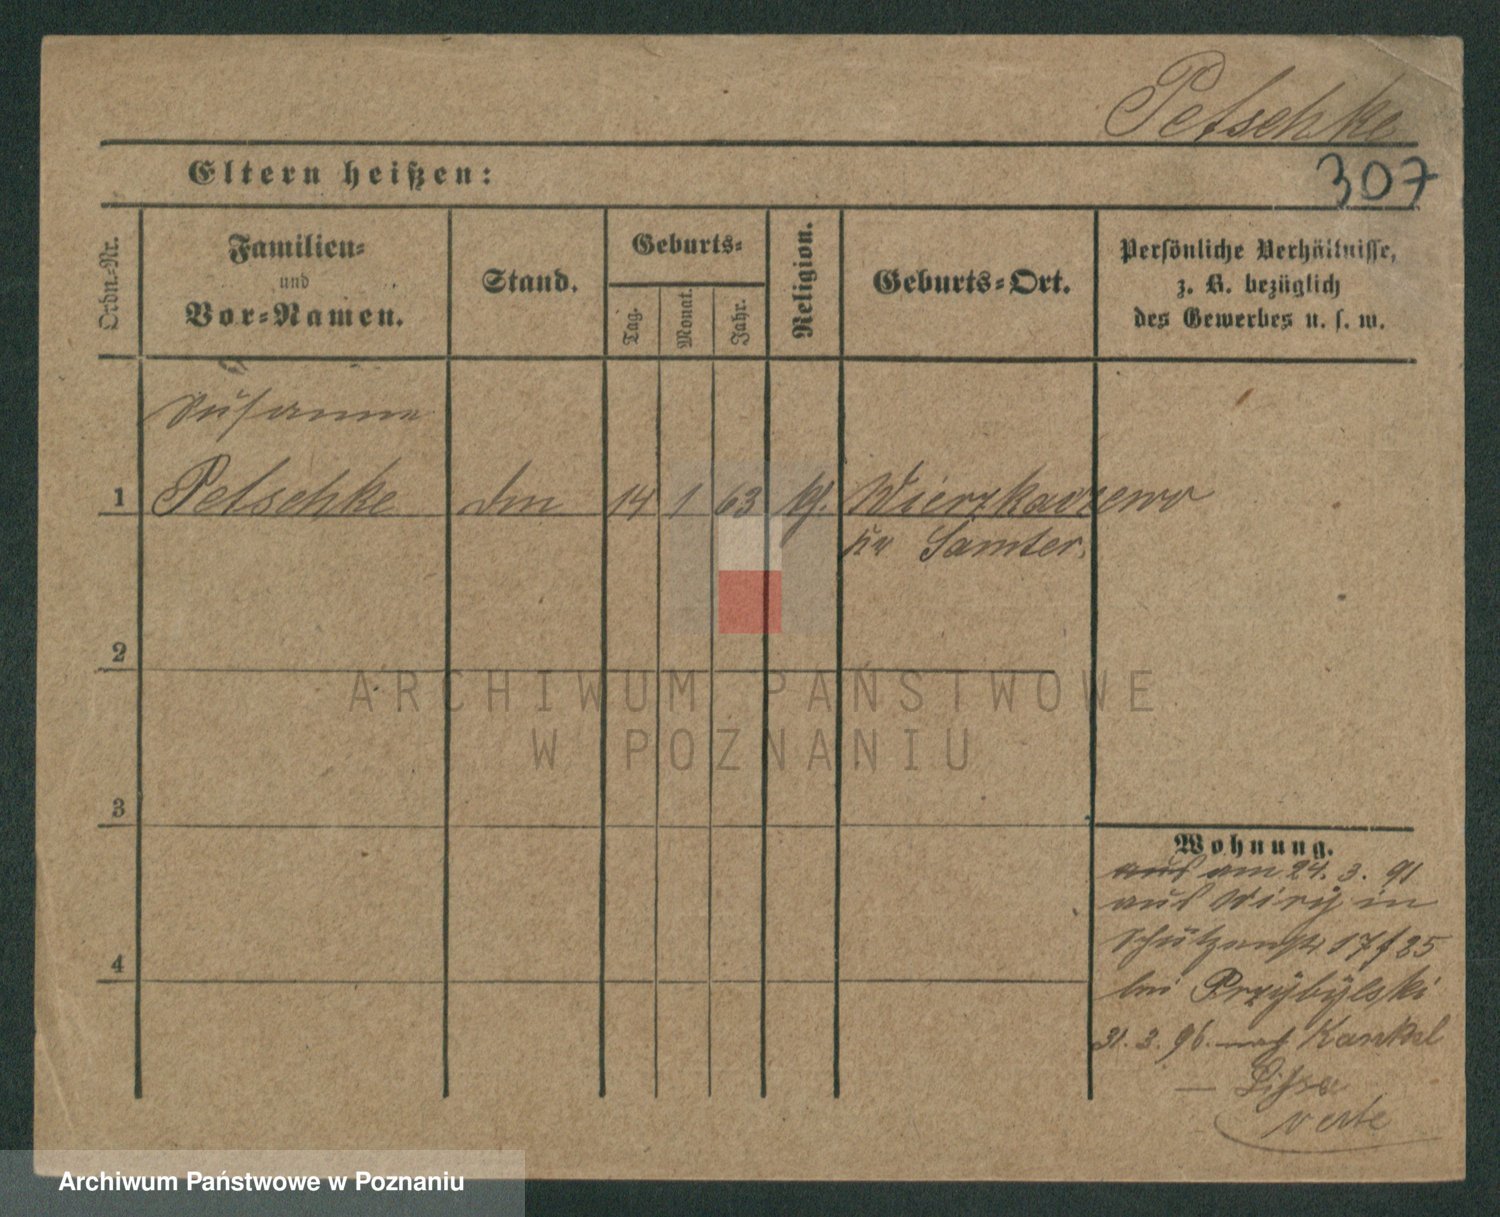 Petschke
307
Eltern heißen:
Ordn.-Nr.
Familien-
und
Vor-Namen.
Stand.
Geburts-
Tag.
Monat.
Jahr.
Religion.
Geburts-Ort.
Persönliche Verhältnisse,
z. B. bezüglich
des Gewerbes u. s. w.
Susanna
1 Petschke 14 1 63 Wierzkaczewo
Kr Samter.
2
3
4
Wohnung.
aus am 24. 3. 91
aus Wiry in
Schützenstr 17 f 25
bei Przybylski
31. 3. 96. nach Kankel
— Lissa
verte
ARCHIWUM PAŃSTWOWE
W POZNANIU
Archiwum Państwowe w Poznaniu